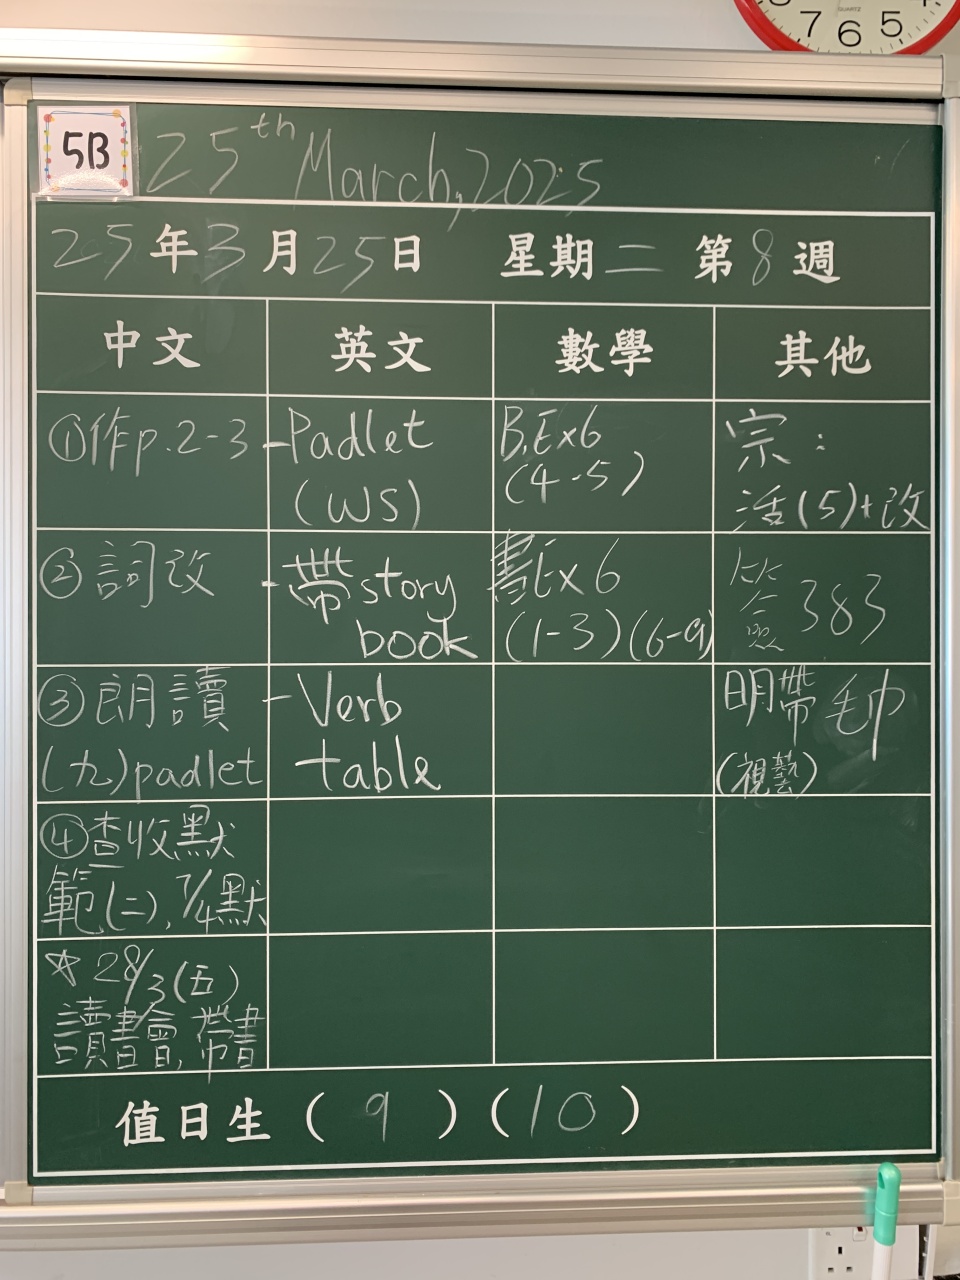 7 6 5
QUARTZ
5B
25th March, 2025
25年3月25日 星期二 第8週
中文 英文 數學 其他
①作p.2-3
-Padlet
(WS)
B.Ex6
(4-5)
宗:
活(5)+改
②詞改
-帶story
book
書Ex6
(1-3)(6-9)
簽383
③朗讀
(九)padlet
-Verb
table
明帶毛巾
(視藝)
④查收默
範(二), 7/4默
☆28/3(五)
讀書會, 帶書
值日生(9)(10)